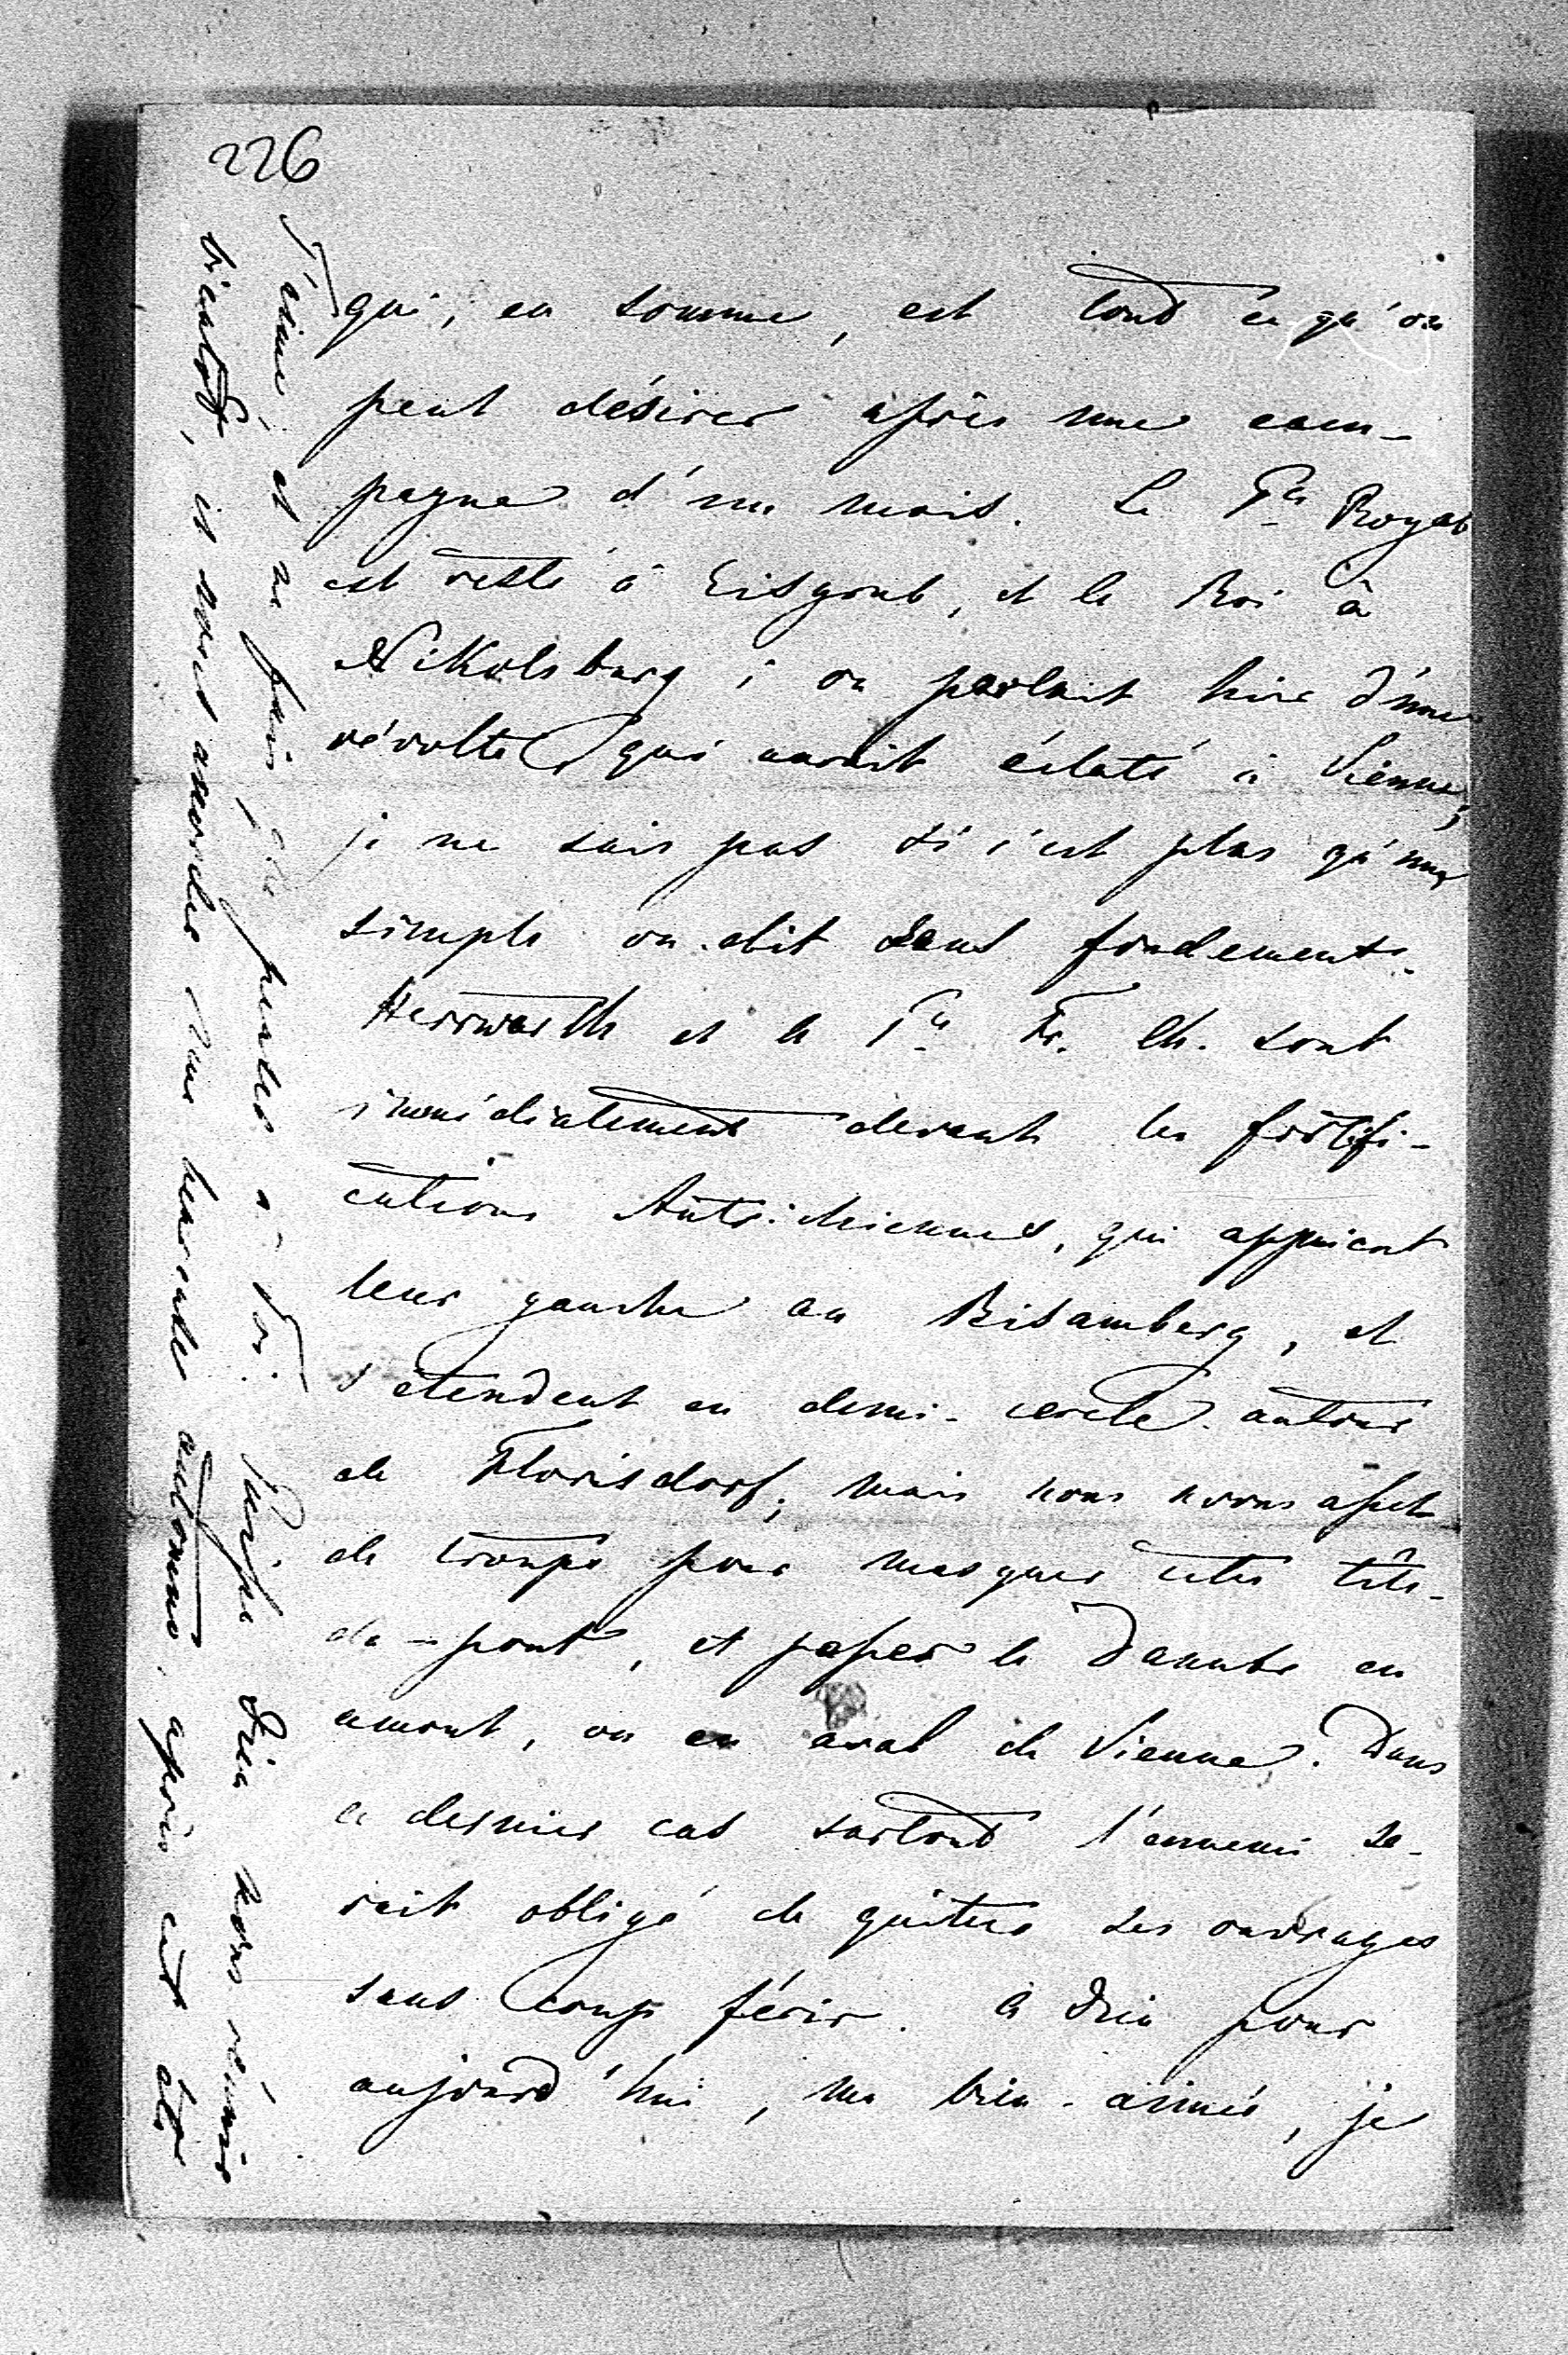 226
qui, en somme, est tout ce qu'on
peut désirer après une cam-
pagne d'un mois. Le Pce Royal
est resté à Eisgrub, et le Roi à
Nikolsburg; on parlait hier d'une
révolte qui aurait éclaté à Vienne;
je ne sais pas si c'est plus qu'un
simple on-dit sans fondement.
Herrwarth et le Pce Fr. Ch. sont
immédiatement devant les fortifi-
cations Autrichiennes, qui appuient
leur gauche au Bisamberg, et
s'étendent en demi-cercle autour
de Florisdorf; mais nous avons assez
de troupes pour masquer cette tête-
de-pont, et passer le Danube en
amont, ou en aval de Vienne. Dans
ce dernier cas surtout l'ennemi se-
rait obligé de quitter ses ouvrages
sans coup férir. A Dieu pour
aujourd'hui, ma bien-aimée, je
T'aime, et ne fais que penser à Toi. Puisse Dieu nous réunir
bientôt, et nous accorder une heureuse automne, après cet été